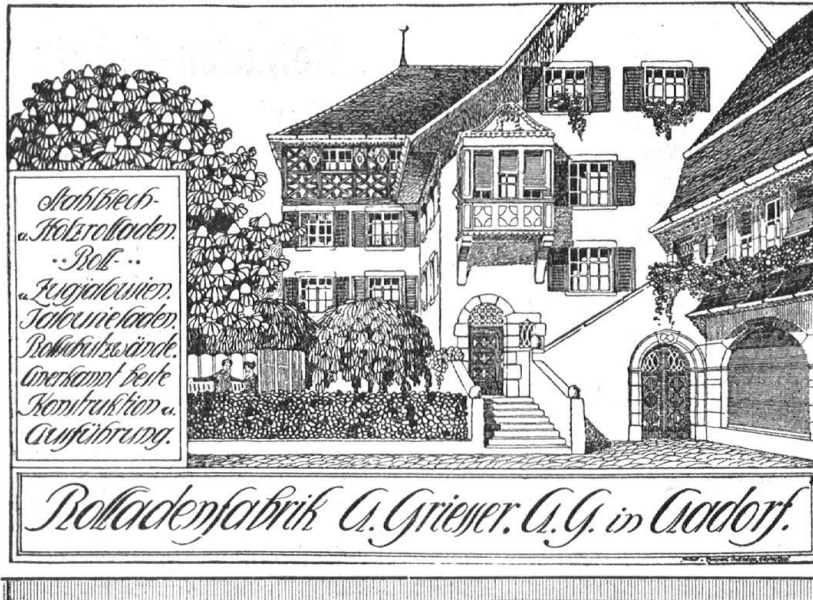 Stahlblech-
u. Holzrolladen.
Roll-
u. Zugjalousien.
Jalousieladen.
Rollschutzwände.
Anerkannt beste
Konstruktion u.
Ausführung.
Rolladenfabrik A. Griesser. A.G. in Aadorf.